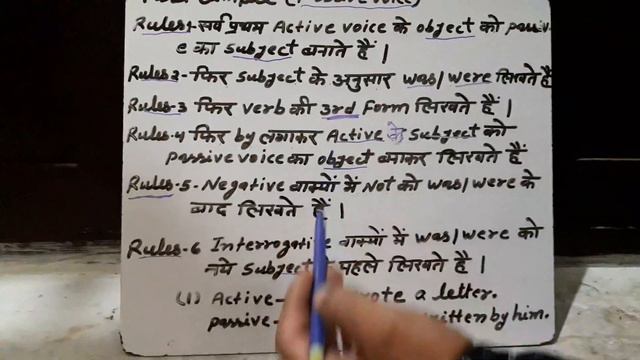 (Passive voice)
Rules-1-सर्व प्रथम Active voice के object को passiv-
e का subject बनाते हैं |
Rules-2-फिर subject के अनुसार was/were लिखते हैं
Rules-3 फिर verb की 3rd Form लिखते हैं |
Rules-4 फिर by लगाकर Active के subject को
passive voice का object बनाकर लिखते हैं
Rules-5-Negative वाक्यों में Not को was/were के
बाद लिखते हैं |
Rules-6 Interrogative वाक्यों में was/were को
नये subject पहले लिखते हैं |
(1) Active- a letter.
passive- by him.